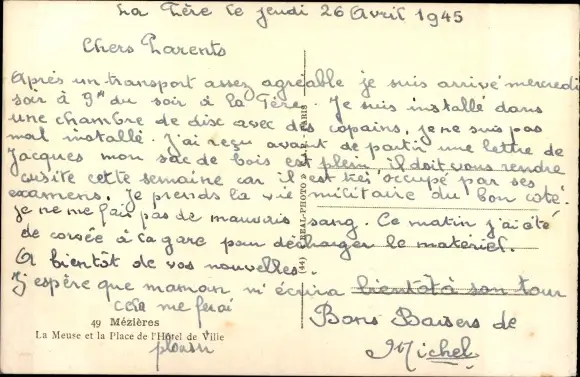 La Fère le jeudi 26 Avril 1945
Chers Parents
Après un transport assez agréable je suis arrivé mercredi
soir à 9h du soir à la Fère. Je suis installé dans
une chambre de dix avec des copains, je ne suis pas
mal installé. J'ai reçu avant de partir une lettre de
Jacques mon sac de bois est plein il doit vous rendre
visite cette semaine car il est très occupé par ses
examens. Je prends la vie militaire du bon coté.
je ne me fais pas de mauvais sang. Ce matin j'ai été
de corvée à la gare pour décharger le matériel.
A bientôt de vos nouvelles.
J'espère que maman m'écrira bientôt à son tour
cela me ferai
plaisir
Bons Baisers de
Michel
49 Mézières
La Meuse et la Place de l'Hôtel de Ville
(44) REAL-PHOTO PARIS